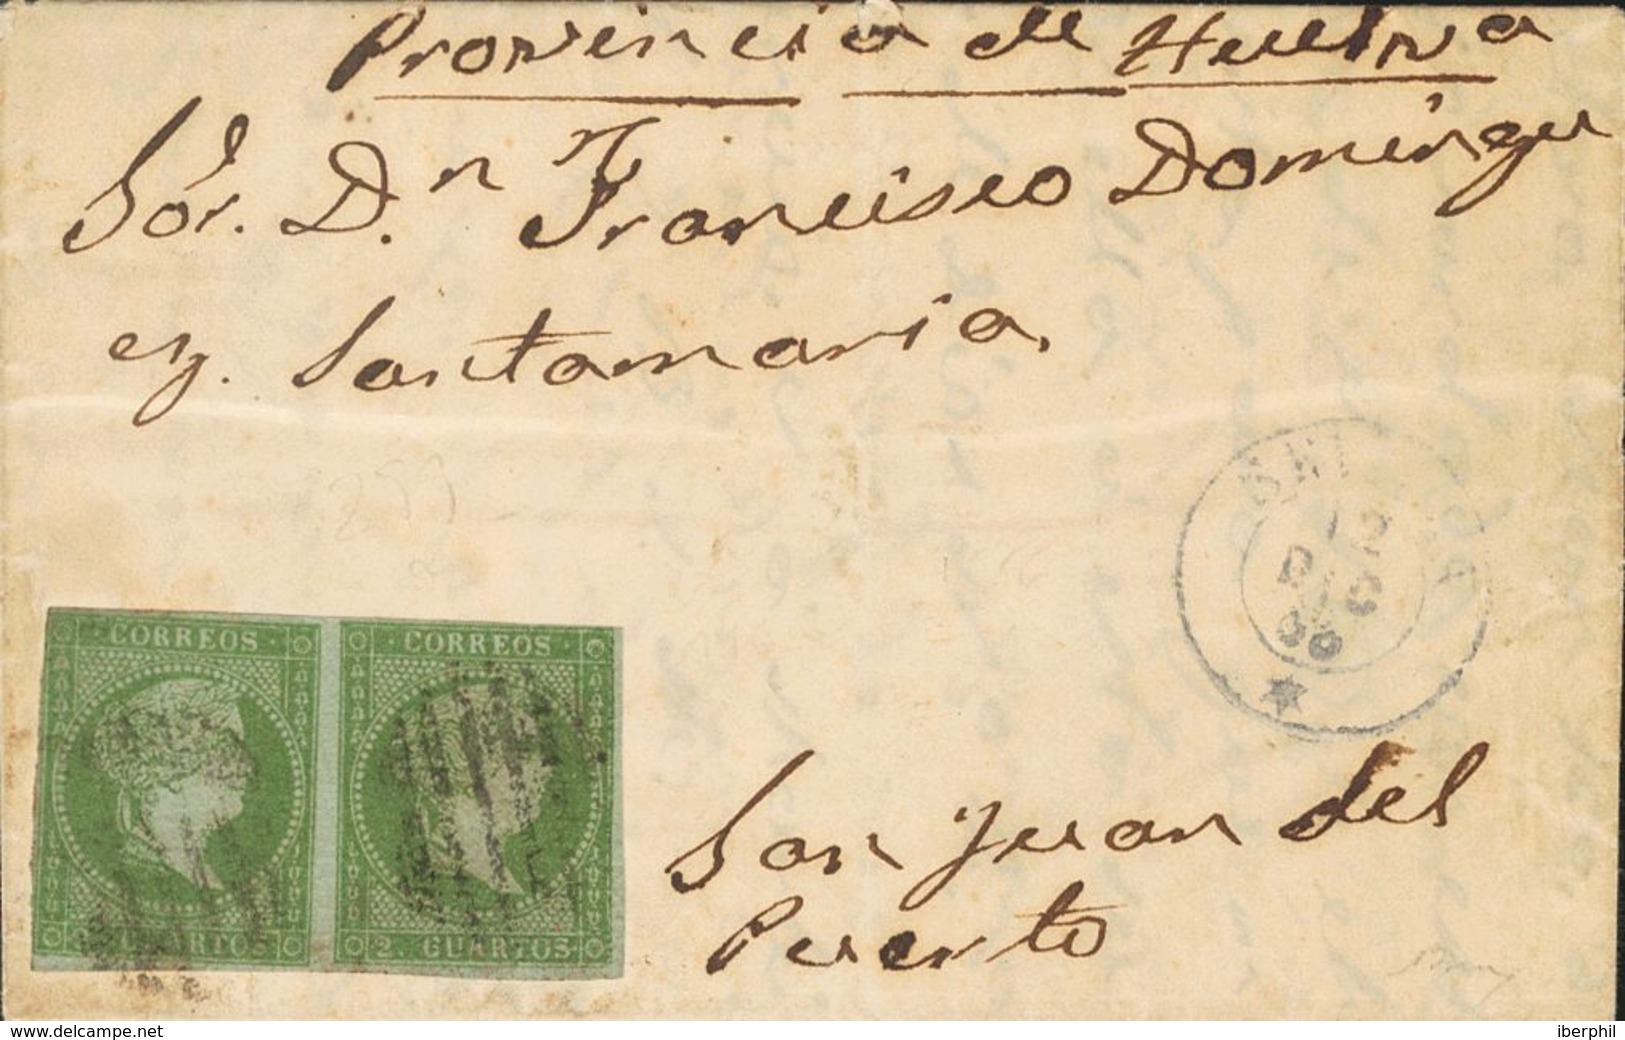 Provincia de Huelva
Sor. Dn Francisco Domingu
ez. Santamaria.
CORREOS
CORREOS
CUARTOS
2. CUARTOS
12
DIC
San Juan del
Puerto
www.delcampe.net
iberphil